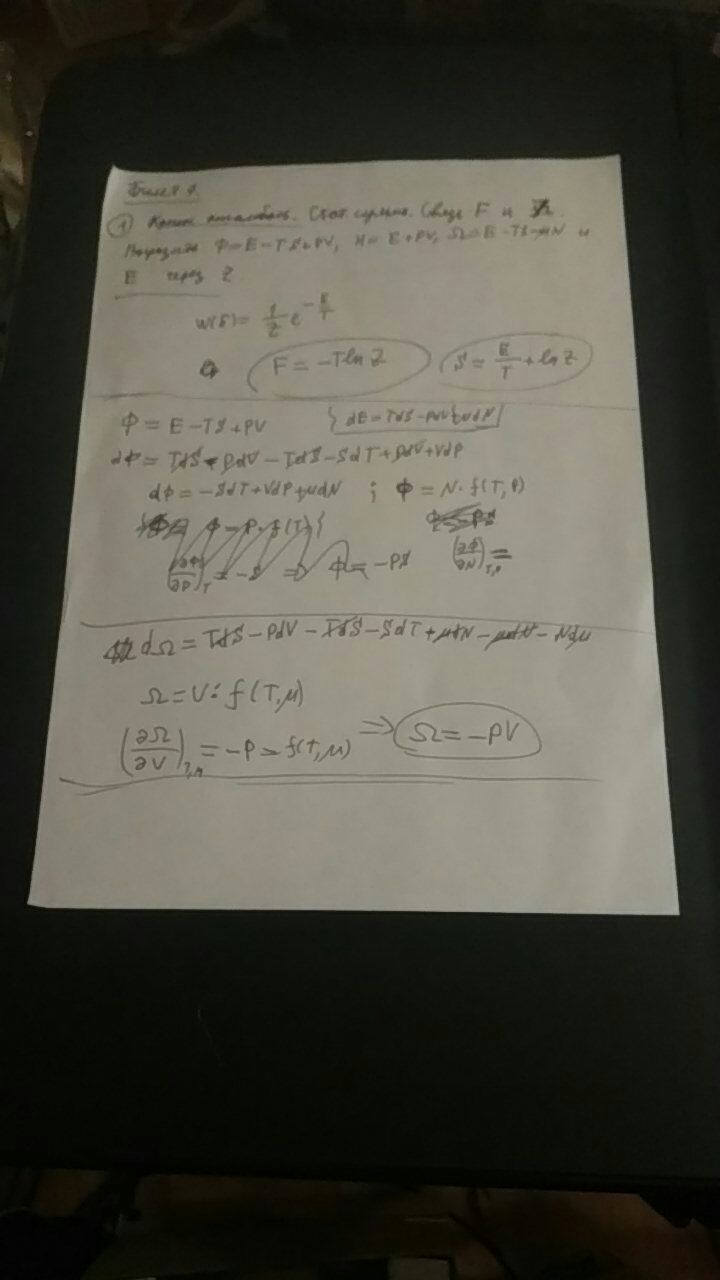 Билет 1.
① Канон. ансамбль. Стат. сумма. Связь F и Z.
Выразить Φ=E−TS+PV, H=E+PV, Ω=E−TS−μN и
E через Z
W(E)= 1/Z e^{−E/T}
F=−T ln Z S= E/T + ln Z
Φ = E−TS+PV {dE=TdS−PdV+μdN}
dΦ = TdS−PdV−TdS−SdT+PdV+VdP
dΦ=−SdT+VdP+μdN ; Φ=N·f(T,P)
Φ=P·f(T)}
(∂Φ/∂P)_T = −S ⇒ Φ=−PS (∂Φ/∂N)_{T,P} =
dΩ= TdS−PdV−TdS−SdT+μdN−μdN−Ndμ
Ω=V·f(T,μ)
(∂Ω/∂V)_{T,μ} =−P=f(T,μ) ⇒ Ω=−PV